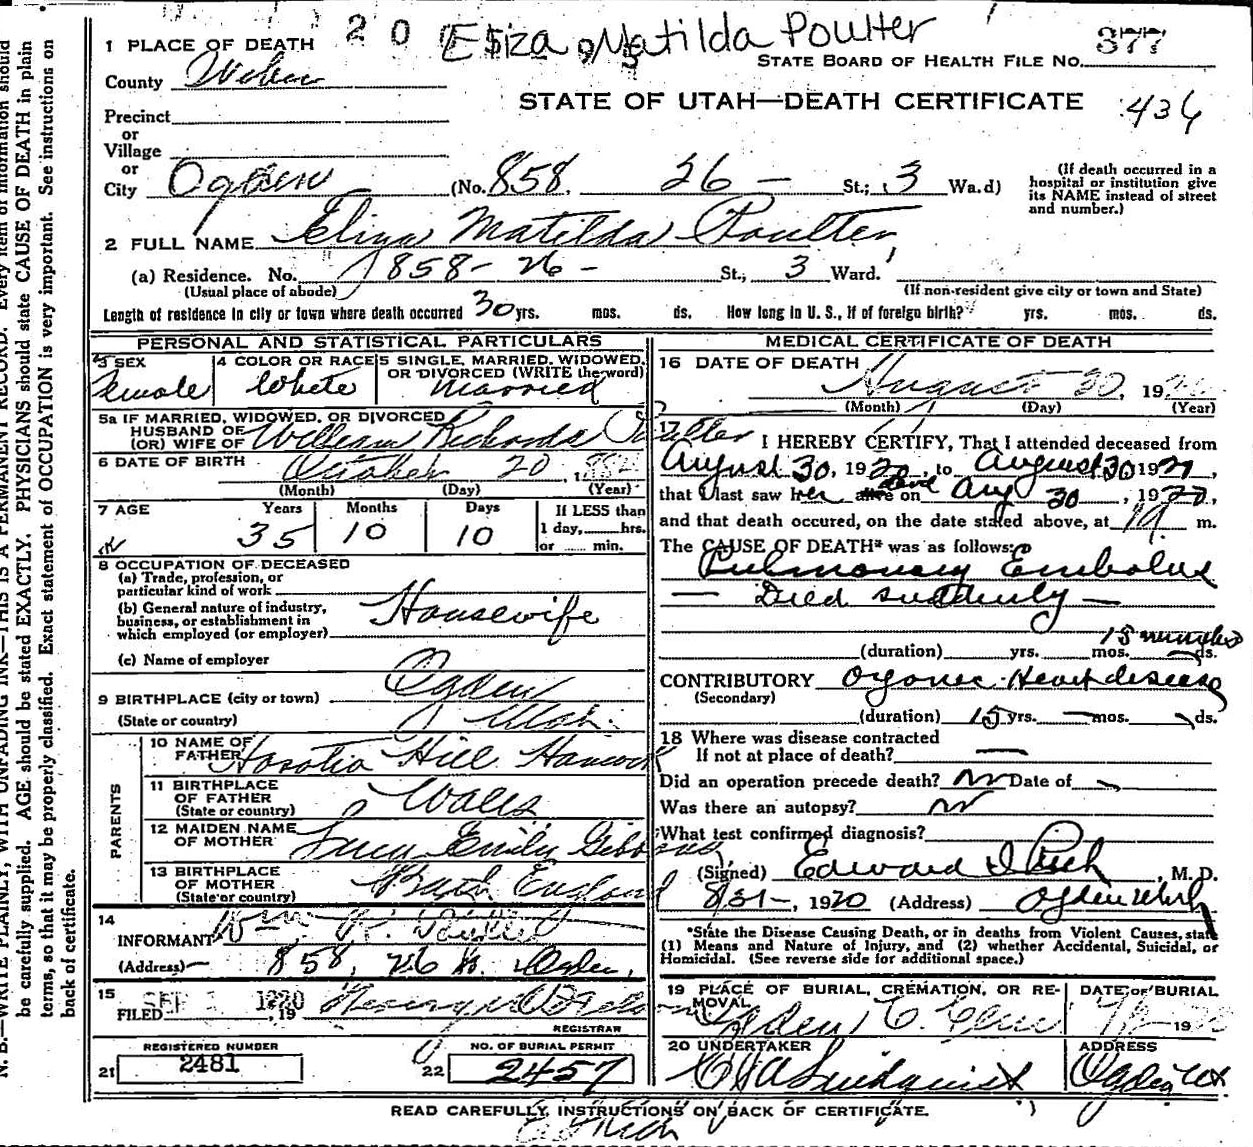 2 0
Eliza Matilda Poulter
377
STATE BOARD OF HEALTH FILE NO.
STATE OF UTAH—DEATH CERTIFICATE
436
1 PLACE OF DEATH
County Weber
Precinct
or
Village
or
City Ogden (No. 858, 26 — St.; 3 Wa.d)
(If death occurred in a
hospital or institution give
its NAME instead of street
and number.)
2 FULL NAME Eliza Matilda Poulter
(a) Residence. No. 858 - 26 - St.; 3 Ward.
(Usual place of abode)
(If non-resident give city or town and State)
Length of residence in city or town where death occurred 30 yrs. mos. ds. How long in U. S., if of foreign birth? yrs. mos. ds.
PERSONAL AND STATISTICAL PARTICULARS
3 SEX
female
4 COLOR OR RACE
White
5 SINGLE, MARRIED, WIDOWED,
OR DIVORCED (WRITE the word)
Married
5a IF MARRIED, WIDOWED, OR DIVORCED
HUSBAND OF
(OR) WIFE OF William Richards Poulter
6 DATE OF BIRTH October 20
(Month) (Day) (Year)
7 AGE Years Months Days If LESS than
1 day, hrs.
or min.
35 10 10
8 OCCUPATION OF DECEASED
(a) Trade, profession, or
particular kind of work
(b) General nature of industry,
business, or establishment in
which employed (or employer)
Housewife
(c) Name of employer
9 BIRTHPLACE (city or town) Ogden
(State or country) Utah.
PARENTS
10 NAME OF
FATHER Horatio Hill Hancock
11 BIRTHPLACE
OF FATHER
(State or country) Wales
12 MAIDEN NAME
OF MOTHER Lucy Emily Gibbons
13 BIRTHPLACE
OF MOTHER
(State or country) Bath England
14
INFORMANT Wm R. Poulter
(Address) 858, 26 St. Ogden,
15
FILED SEP 1920, 19
REGISTRAR
REGISTERED NUMBER
21 2481
NO. OF BURIAL PERMIT
22 2457
MEDICAL CERTIFICATE OF DEATH
16 DATE OF DEATH
August 30, 1920
(Month) (Day) (Year)
17
I HEREBY CERTIFY, That I attended deceased from
August 30, 1920, to August 30 1920,
that I last saw her alive dead on Aug 30, 1920,
and that death occured, on the date stated above, at m.
The CAUSE OF DEATH* was as follows:
Pulmonary Embolus
— Died suddenly —
15 minutes
(duration) yrs. mos. ds.
CONTRIBUTORY Organic Heart disease
(Secondary)
(duration) 15 yrs. — mos. ds.
18 Where was disease contracted
If not at place of death? —
Did an operation precede death? No Date of
Was there an autopsy? No
What test confirmed diagnosis?
(Signed) Edward I Rich, M. D.
8/31 -, 1920 (Address) Ogden Utah
*State the Disease Causing Death, or in deaths from Violent Causes, state
(1) Means and Nature of Injury, and (2) whether Accidental, Suicidal, or
Homicidal. (See reverse side for additional space.)
19 PLACE OF BURIAL, CREMATION, OR RE-
MOVAL
DATE OF BURIAL
Ogden C. Cem 19
20 UNDERTAKER
C J A Lindquist
ADDRESS
Ogden Ut
READ CAREFULLY, INSTRUCTIONS ON BACK OF CERTIFICATE.
E I Rich
N. B.—WRITE PLAINLY, WITH UNFADING INK—THIS IS A PERMANENT RECORD. Every item of information should
be carefully supplied. AGE should be stated EXACTLY. PHYSICIANS should state CAUSE OF DEATH in plain
terms, so that it may be properly classified. Exact statement of OCCUPATION is very important. See instructions on
back of certificate.